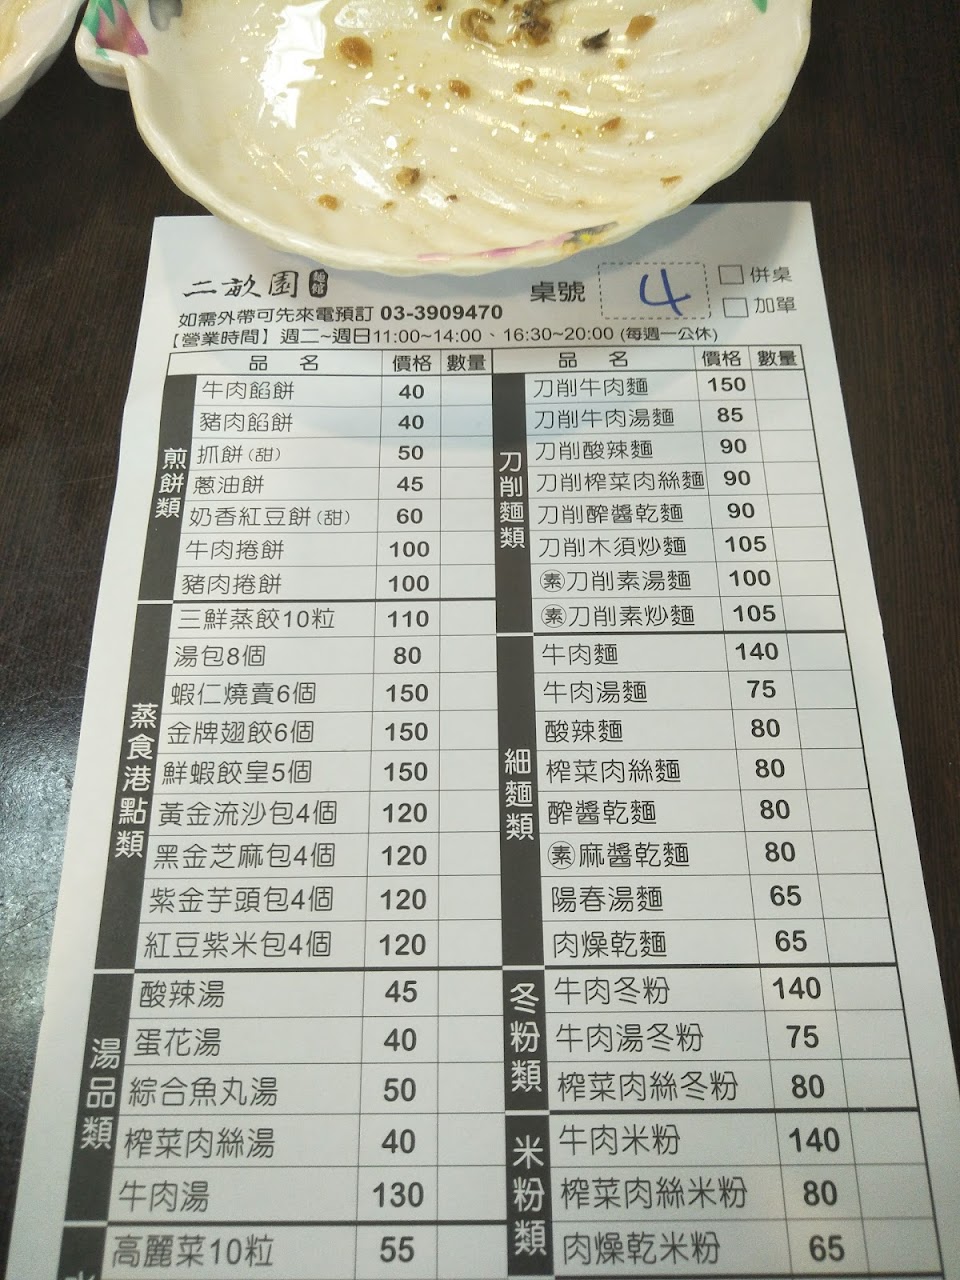 二畝園 麵館
桌號 4 □併桌
□加單
如需外帶可先來電預訂 03-3909470
【營業時間】週二~週日11:00~14:00、16:30~20:00 (每週一公休)
品 名 價格 數量
煎餅類
牛肉餡餅 40
豬肉餡餅 40
抓餅(甜) 50
蔥油餅 45
奶香紅豆餅(甜) 60
牛肉捲餅 100
豬肉捲餅 100
蒸食港點類
三鮮蒸餃10粒 110
湯包8個 80
蝦仁燒賣6個 150
金牌翅餃6個 150
鮮蝦餃皇5個 150
黃金流沙包4個 120
黑金芝麻包4個 120
紫金芋頭包4個 120
紅豆紫米包4個 120
湯品類
酸辣湯 45
蛋花湯 40
綜合魚丸湯 50
榨菜肉絲湯 40
牛肉湯 130
高麗菜10粒 55
品 名 價格 數量
刀削麵類
刀削牛肉麵 150
刀削牛肉湯麵 85
刀削酸辣麵 90
刀削榨菜肉絲麵 90
刀削醡醬乾麵 90
刀削木須炒麵 105
㊝素刀削素湯麵 100
素刀削素炒麵 105
細麵類
牛肉麵 140
牛肉湯麵 75
酸辣麵 80
榨菜肉絲麵 80
醡醬乾麵 80
素麻醬乾麵 80
陽春湯麵 65
肉燥乾麵 65
冬粉類
牛肉冬粉 140
牛肉湯冬粉 75
榨菜肉絲冬粉 80
米粉類
牛肉米粉 140
榨菜肉絲米粉 80
肉燥乾米粉 65